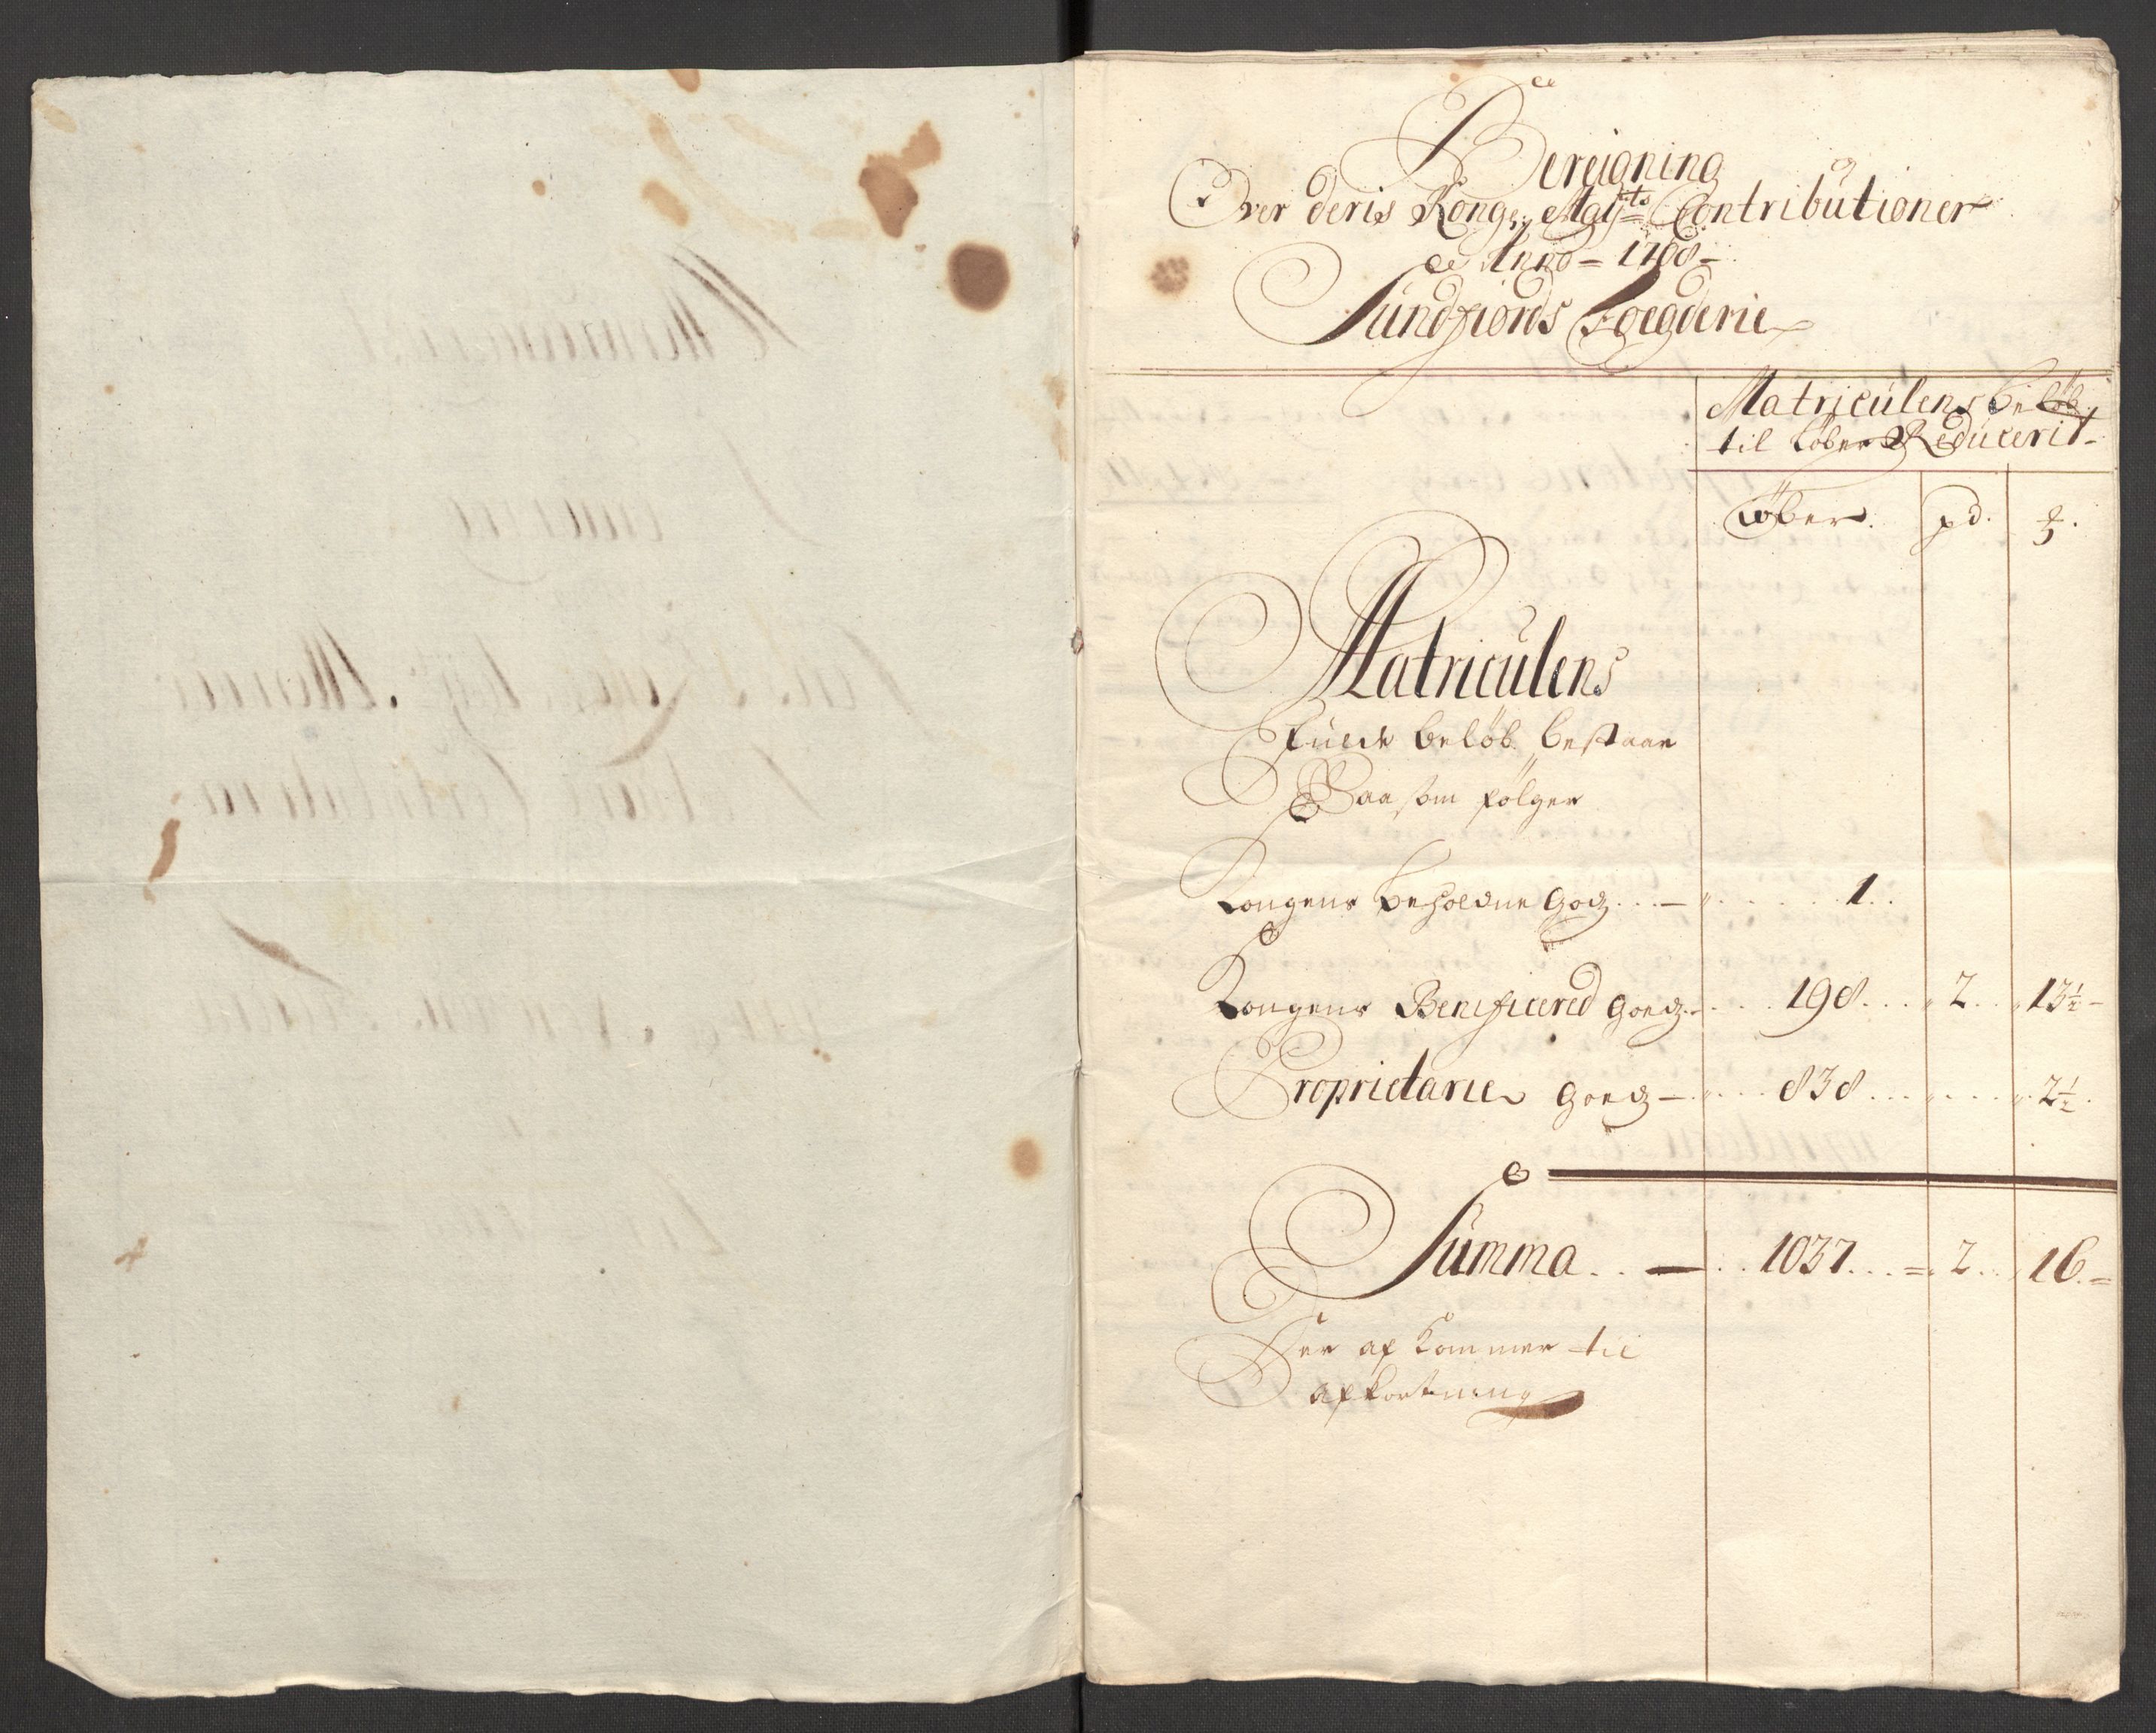 Bereigning
Over deris Kong: Maij:ts Contributioner
Anno – 1708 –
Sundfiords Foegderie
Matriculens beløb
til Løber Reducerit –
Løber. pd. ℔.
Matriculens
fulde beløb bestaar
Saasom følger
Kongens beholdne Godz ... – 1 ..
Kongens Beneficered Goedz – 198 ... 2 .. 13½ –
Proprietarie Goedz – 838 ... 2½.
Summa .. – 1037 ... 2 .. 16. –
Her af kommer til
afkortning